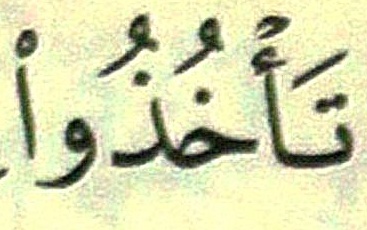 تَأْخُذُواْ